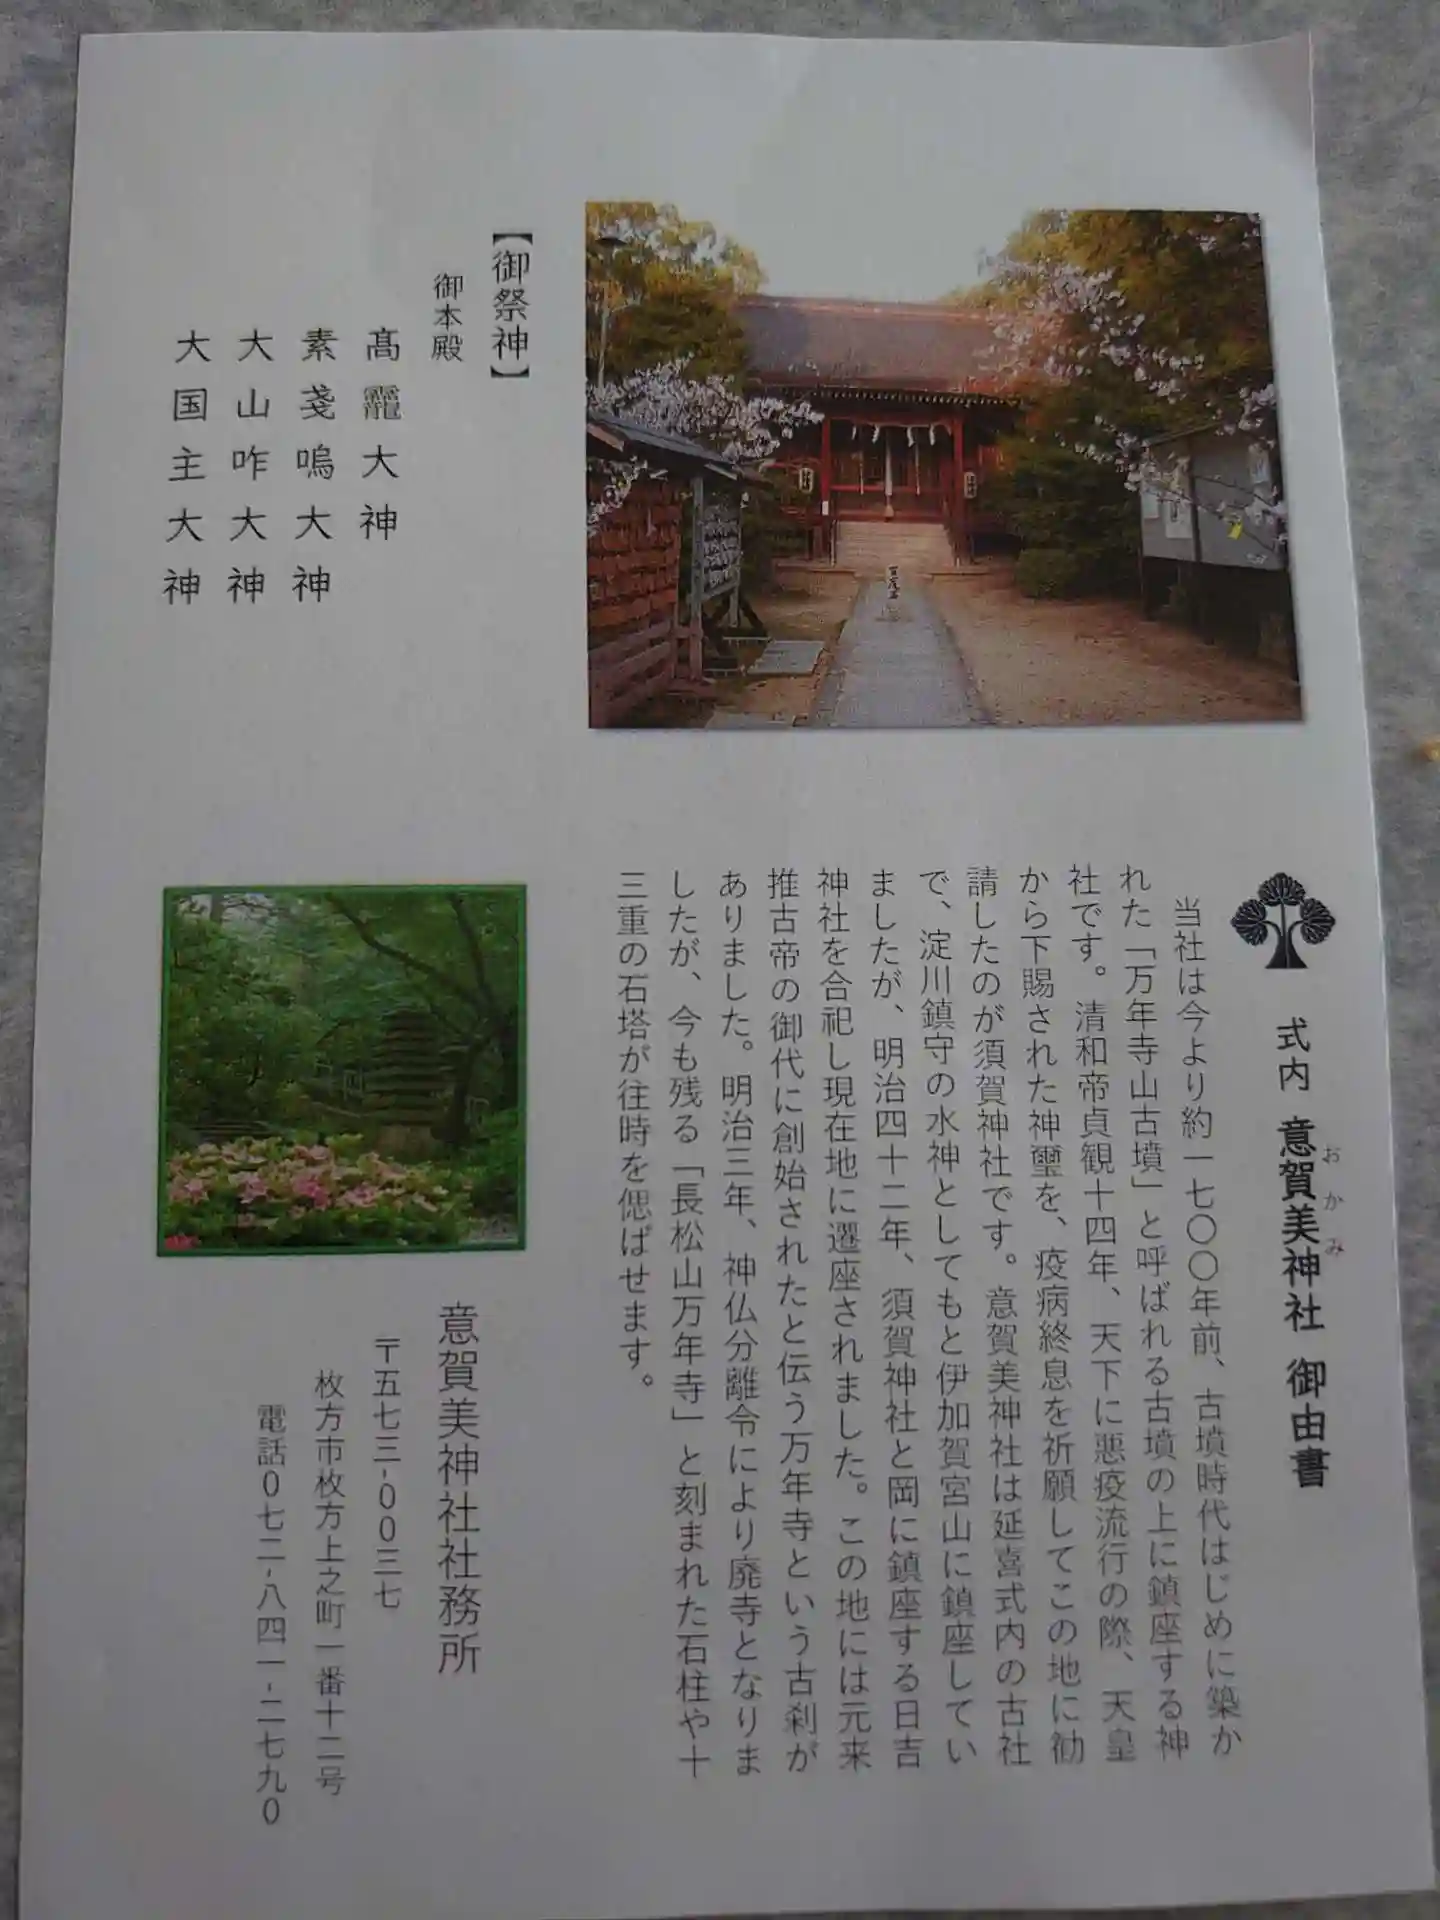 式内 意賀美神社 御由書
おかみ
当社は今より約一七〇〇年前、古墳時代はじめに築か
れた「万年寺山古墳」と呼ばれる古墳の上に鎮座する神
社です。清和帝貞観十四年、天下に悪疫流行の際、天皇
から下賜された神璽を、疫病終息を祈願してこの地に勧
請したのが須賀神社です。意賀美神社は延喜式内の古社
で、淀川鎮守の水神としてもと伊加賀宮山に鎮座してい
ましたが、明治四十二年、須賀神社と岡に鎮座する日吉
神社を合祀し現在地に遷座されました。この地には元来
推古帝の御代に創始されたと伝う万年寺という古刹が
ありました。明治三年、神仏分離令により廃寺となりま
したが、今も残る「長松山万年寺」と刻まれた石柱や十
三重の石塔が往時を偲ばせます。
【御祭神】
御本殿
髙龗大神
素戔嗚大神
大山咋大神
大国主大神
意賀美神社社務所
〒五七三-００三七
枚方市枚方上之町一番十二号
電話０七二-八四一-二七九０